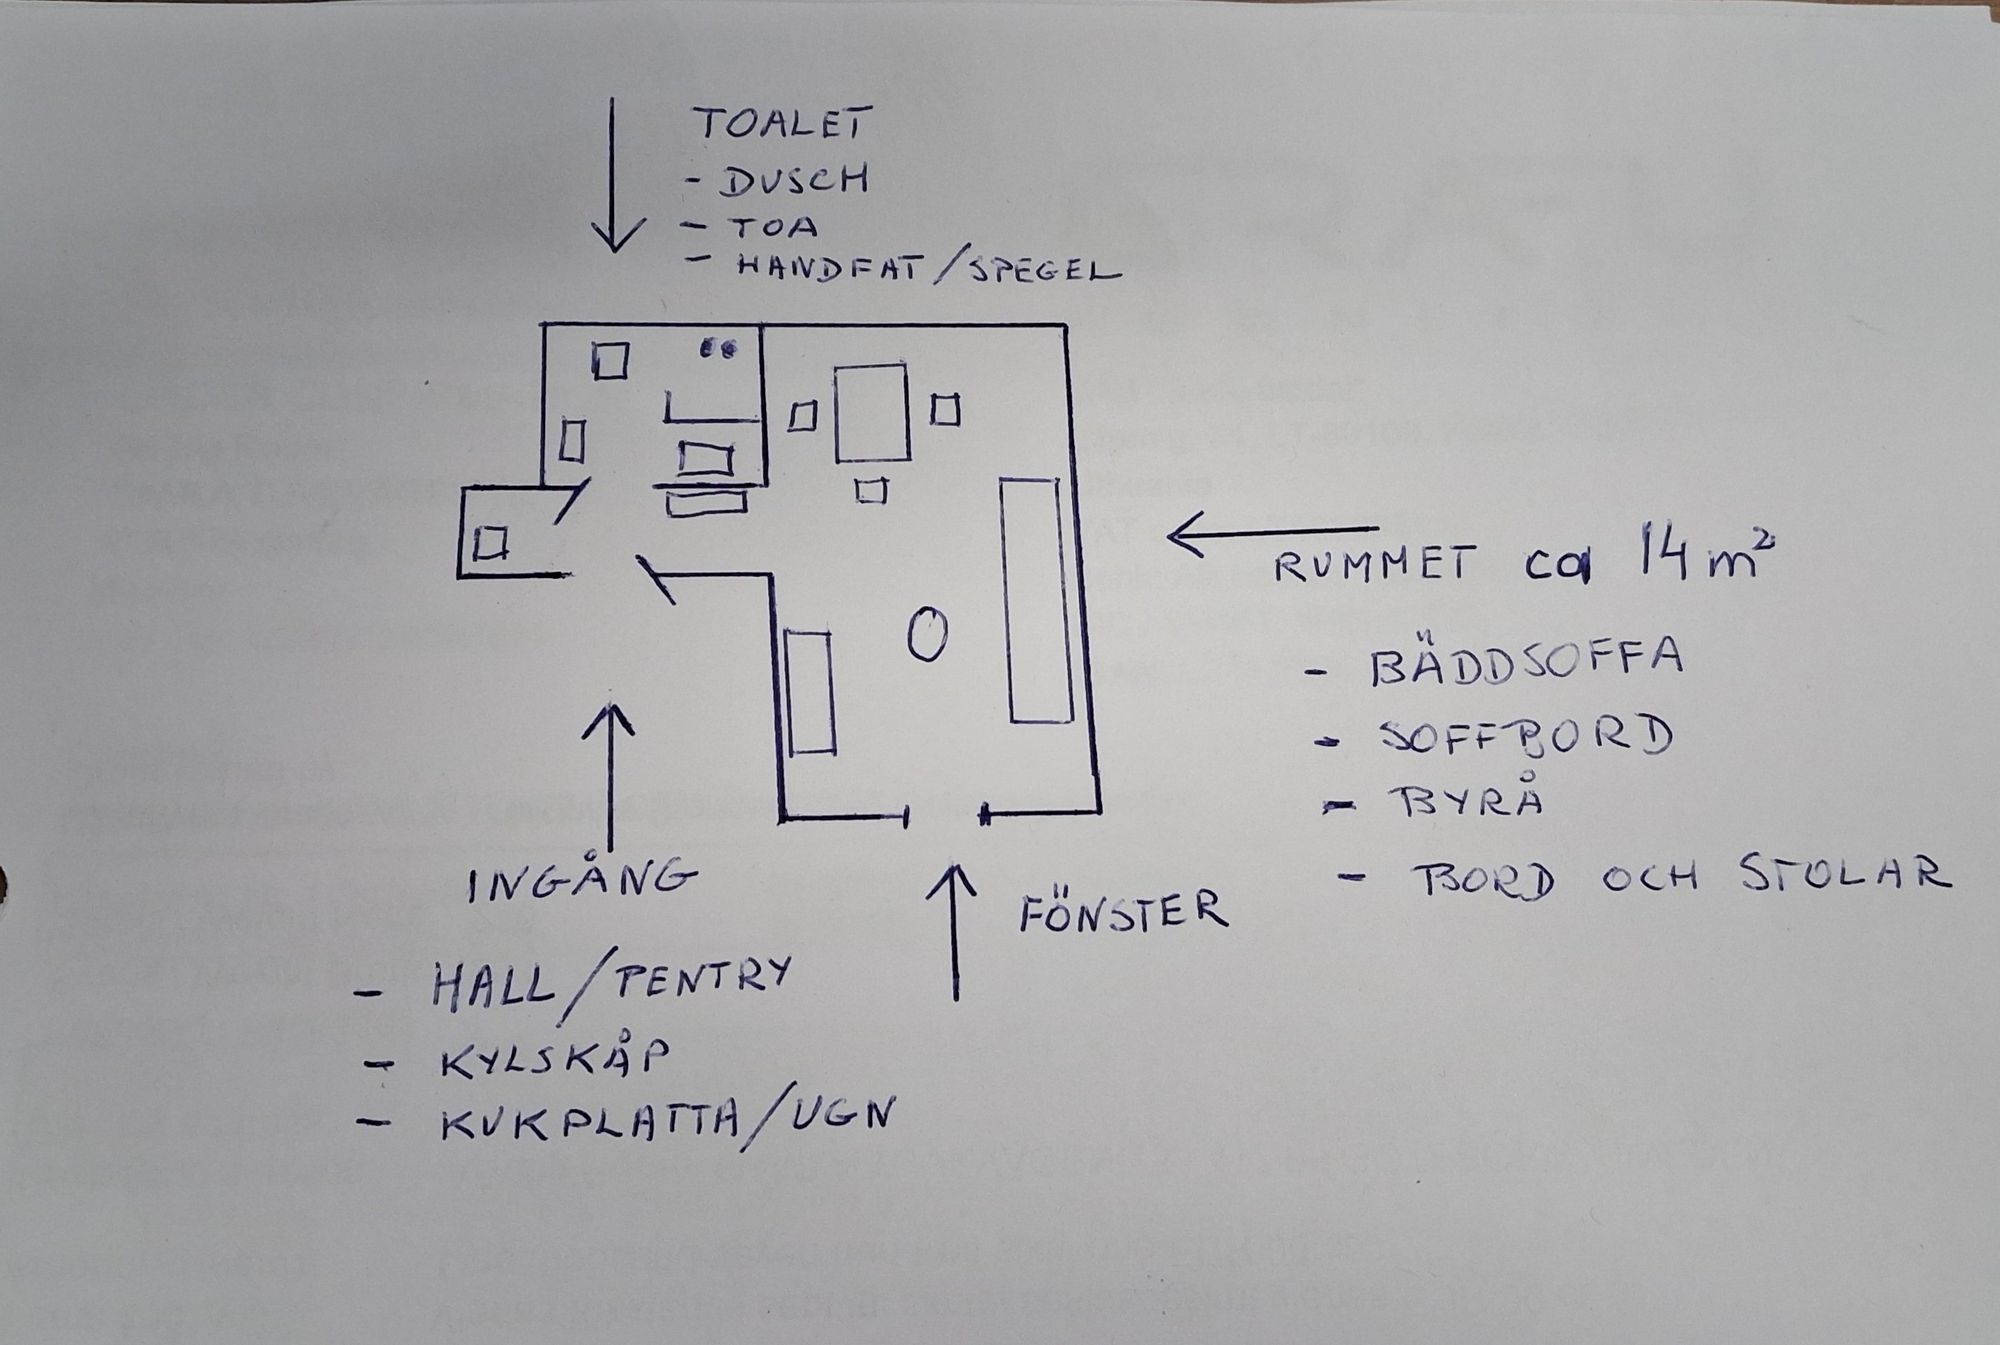 TOALET
- DUSCH
- TOA
- HANDFAT/SPEGEL
RUMMET ca 14 m²
- BÄDDSOFFA
- SOFFBORD
- BYRÅ
- BORD OCH STOLAR
INGÅNG
- HALL/PENTRY
- KYLSKÅP
- KUKPLATTA/UGN
FÖNSTER